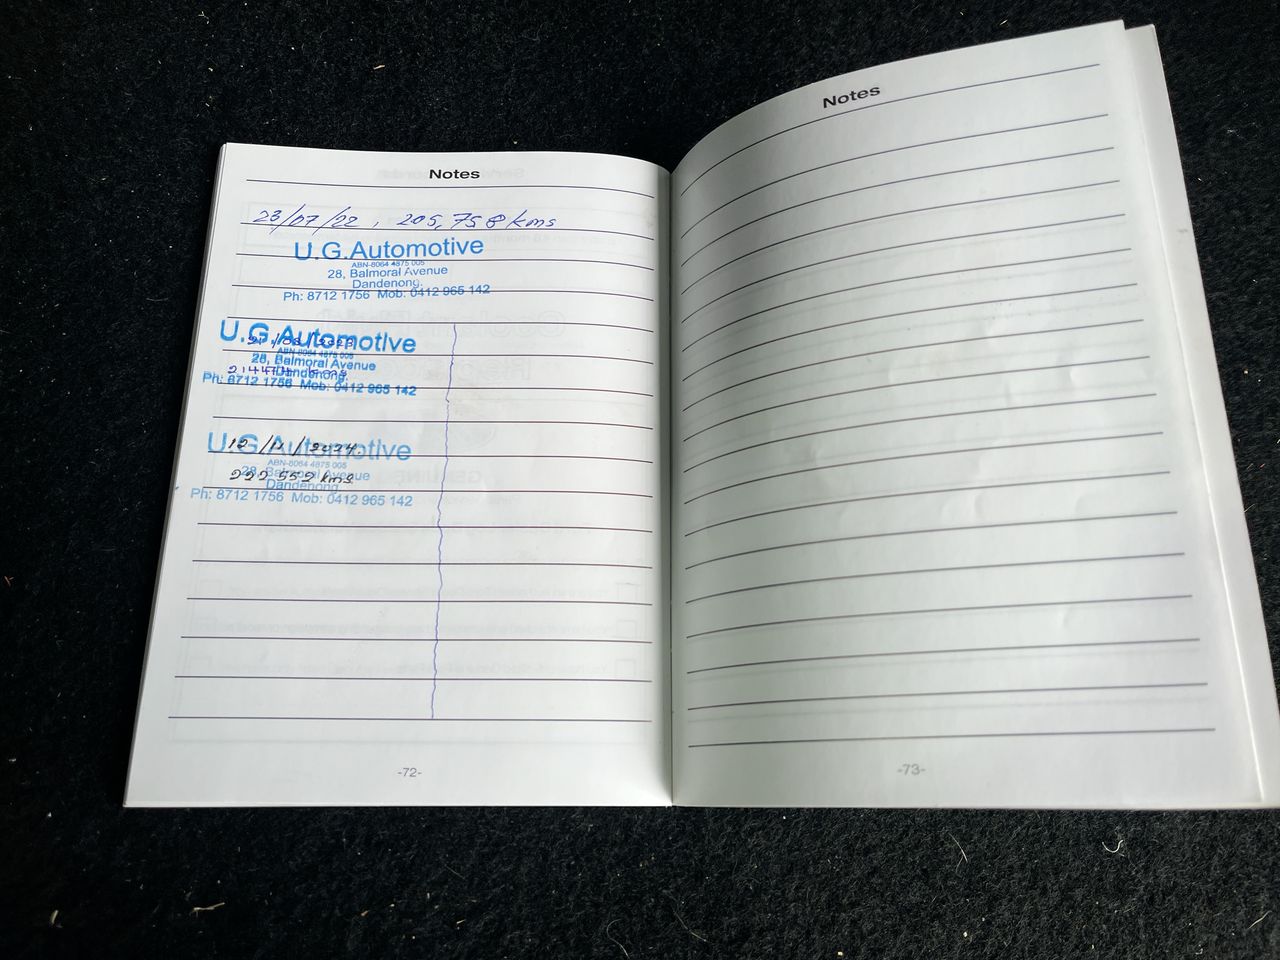 Notes
23/07/22, 205,758 kms
U.G.Automotive
ABN-8064 4875 005
28, Balmoral Avenue
Dandenong.
Ph: 8712 1756 Mob: 0412 965 142
U.G.Automotive
ABN-8064 4875 005
28, Balmoral Avenue
Dandenong.
Ph: 8712 1756 Mob: 0412 965 142
U.G.Automotive
12/11/2024.
ABN-8064 4875 005
28, Balmoral Avenue
222 552 kms.
Dandenong
Ph: 8712 1756 Mob: 0412 965 142
-72-
Notes
-73-